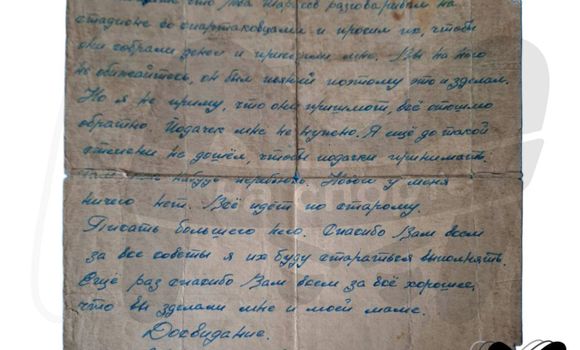 что Ува Тарасов разговаривал на
стадионе со спартаковцами и просил их, чтобы
они собрали денег и привезли мне. Вы на него
не обижайтесь, он был пьяный поэтому это и зделал.
Но я не приму, что они пришлют, всё отошлю
обратно. Подачек мне не нужно. Я ещё до такой
степени не дошёл, чтобы подачки принимать.
нибудь у меня
ничего нет. Всё идёт по старому.
Писать больше нечего. Спасибо Вам всем
за все советы я их буду стараться выполнять.
Ещё раз спасибо Вам всем за всё хорошее,
что вы зделали мне и моей маме.
Досвидание.